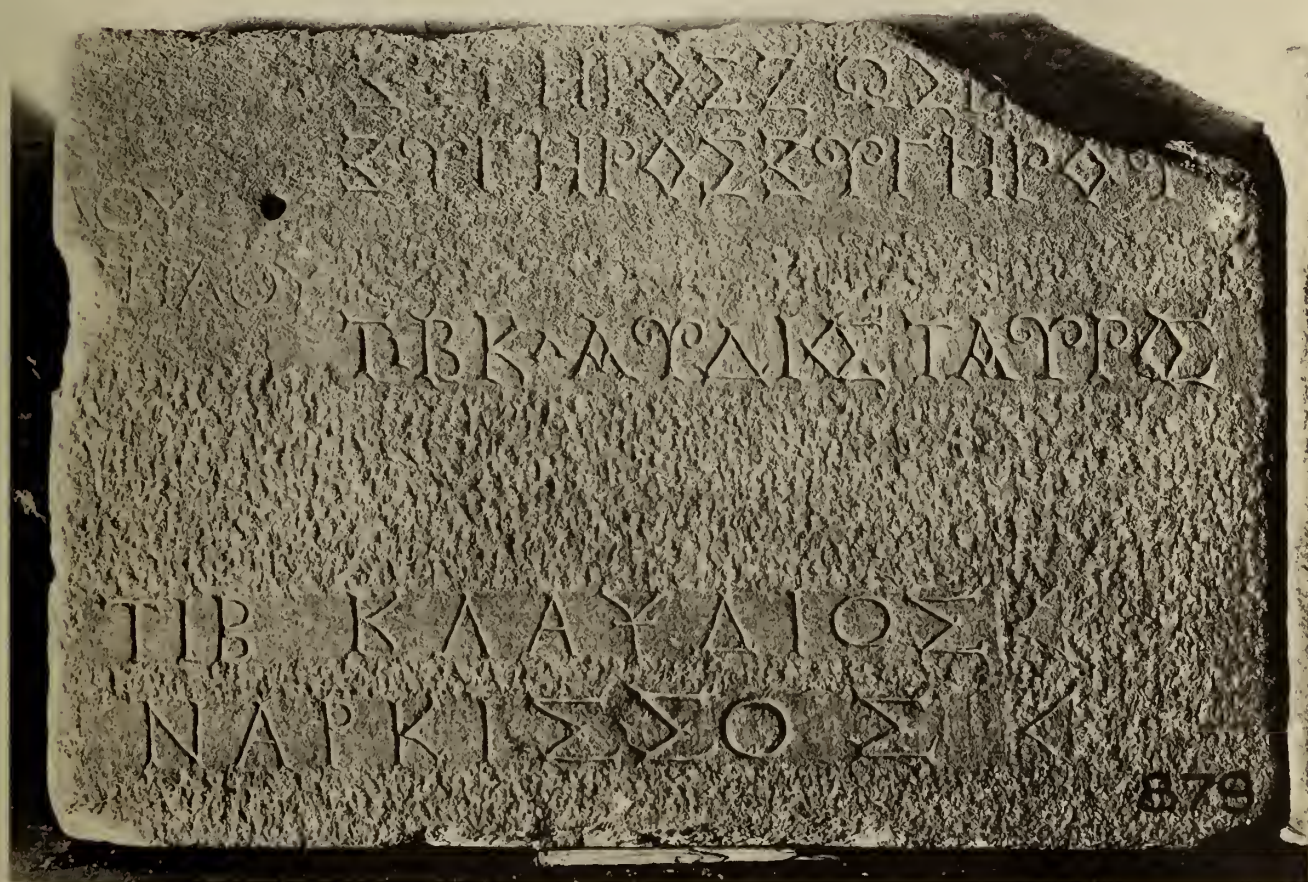 ΣΥΓΗΡΟΣΖΩΣΙ
ΣΥΓΗΡΟΣΣΥΓΗΡΟΥ
ΛΟΥ
ΙΛΟΥ
ΤΙΒΚΛΑΥΔΙΟΣ ΤΑΥΡΟΣ
ΤΙΒ ΚΛΑΥΔΙΟΣ
ΝΑΡΚΙΣΣΟΣ
878